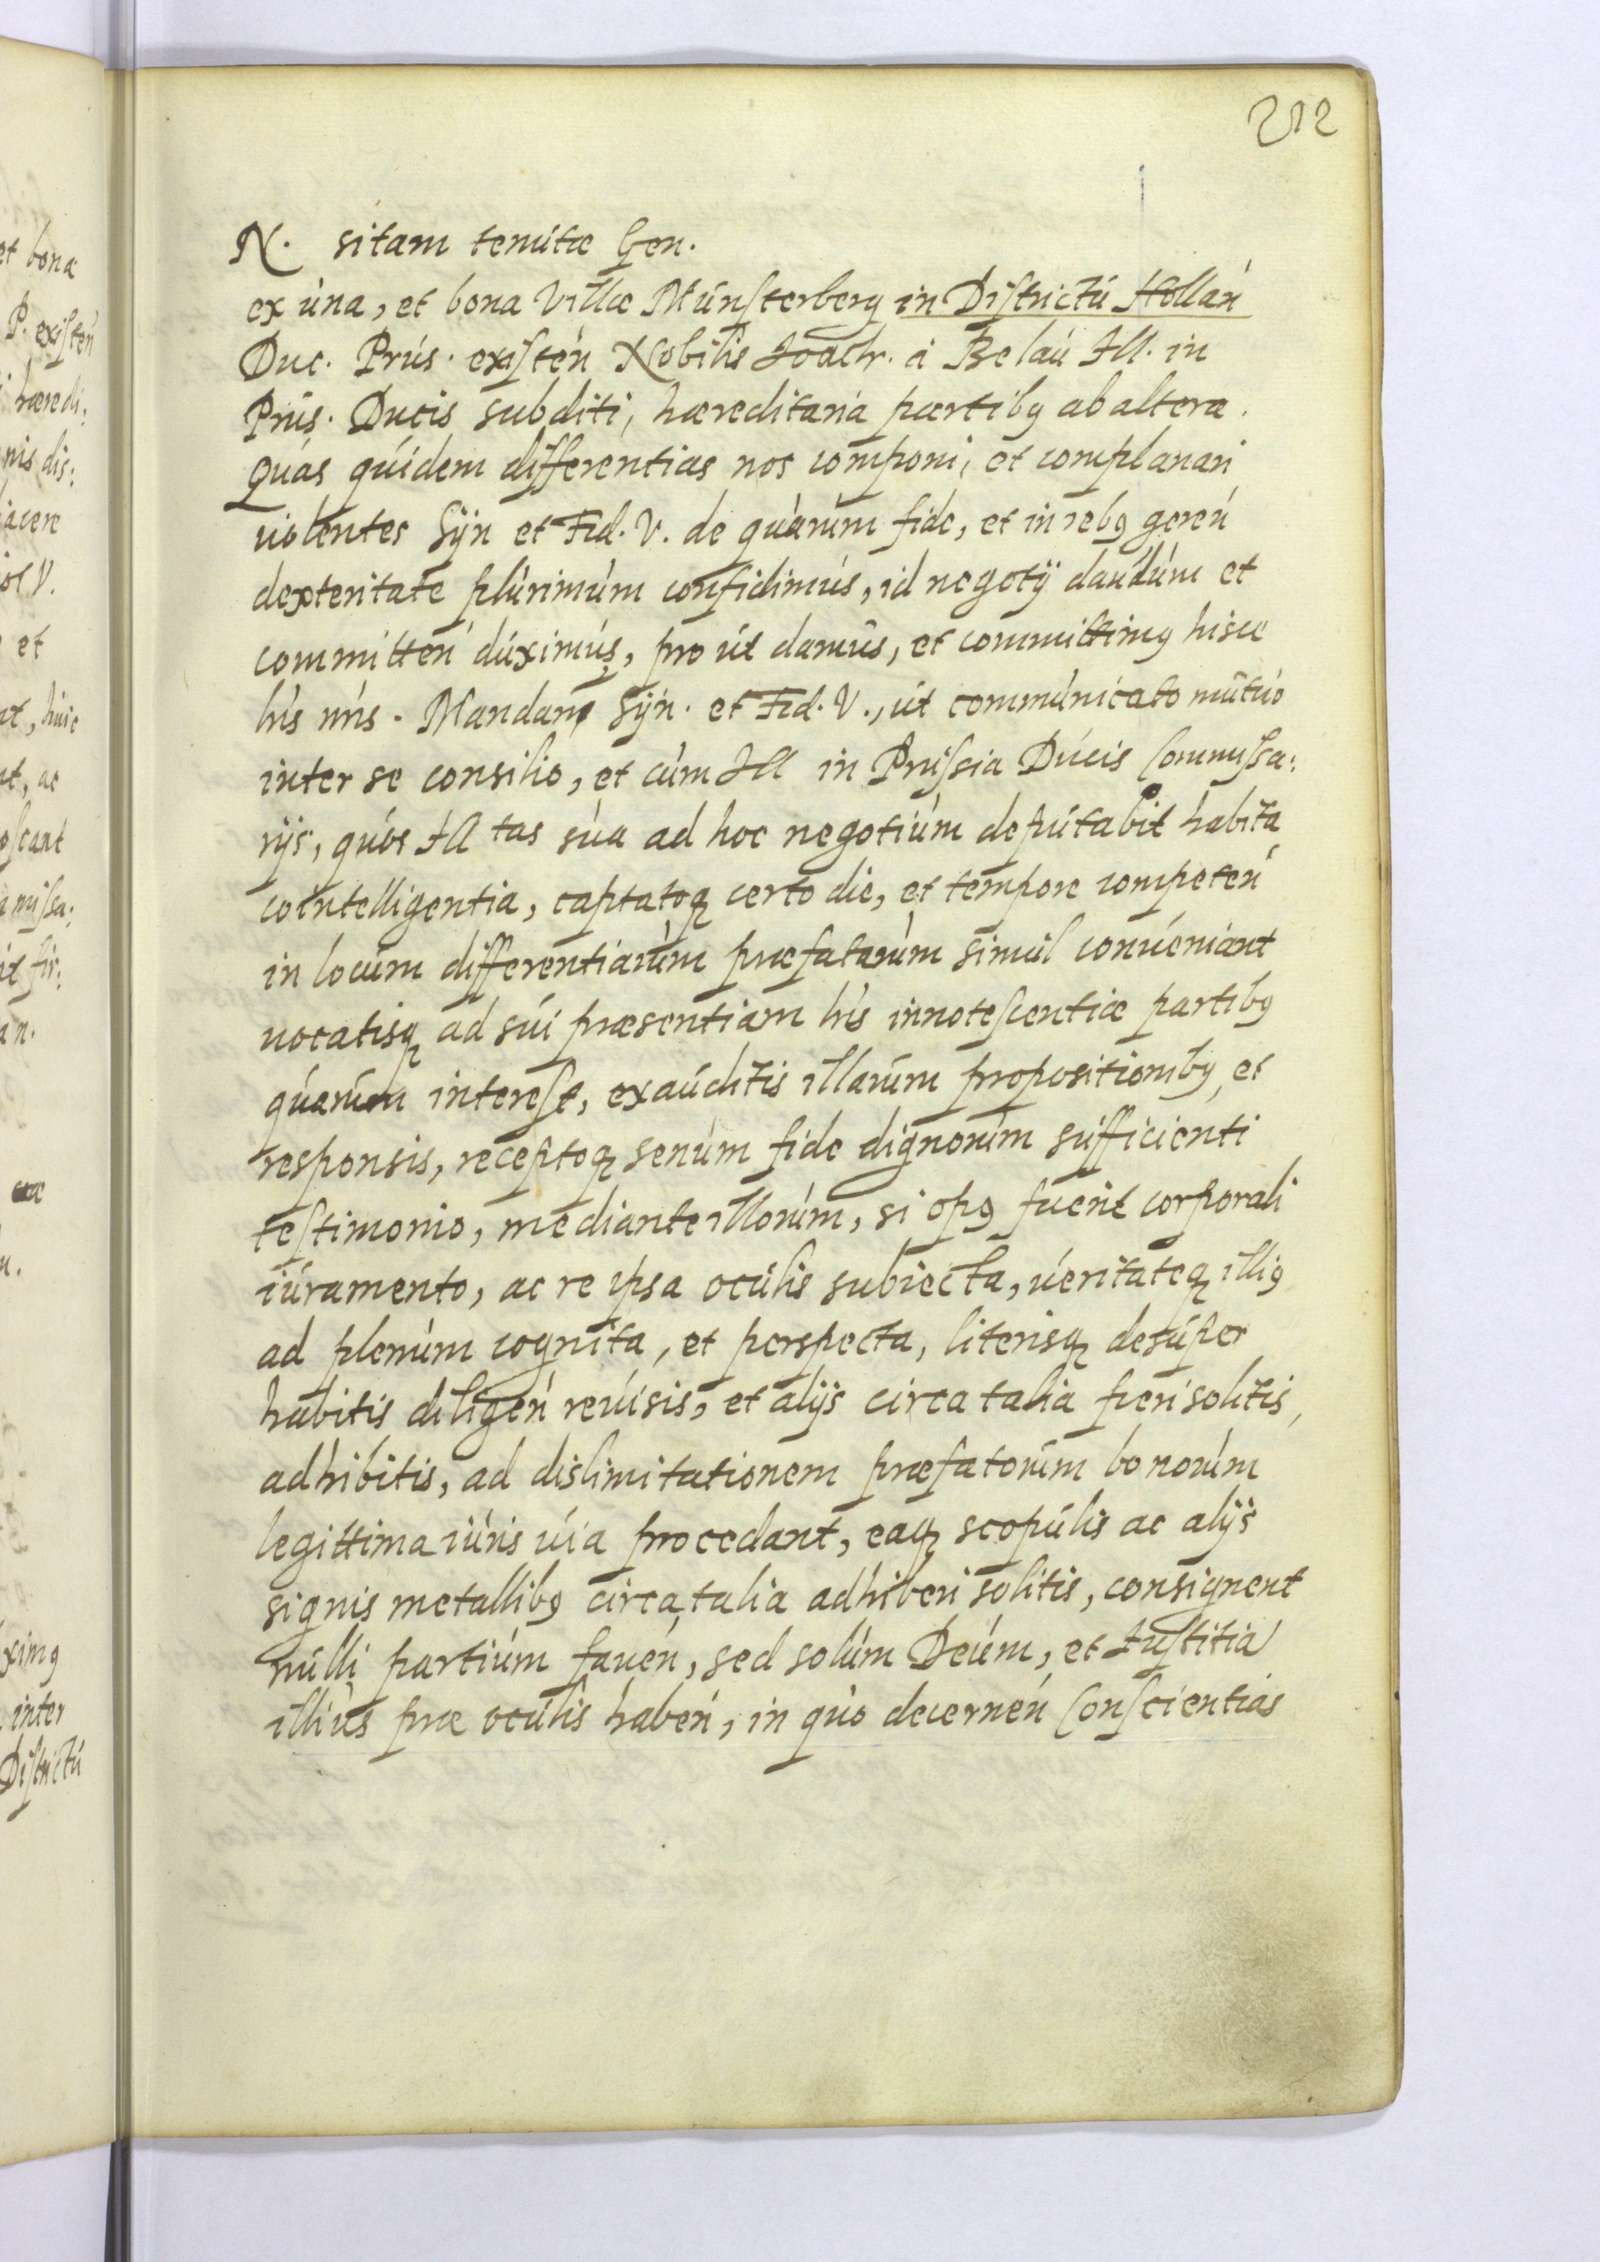 212
N. sitam tenutæ Gen.
ex una, et bona Villæ Münsterberg in Districtu Hollan
Duc. Prus. existen Nobilis Joach. a Belau Ill. in
Prus. Ducis subditi, hæreditaria partibꝯ ab altera.
Quas quidem differentias nos componi, et complanari
uolentes Syn et Fid. V. de quarum fide, et in rebꝯ geren
dexteritate plurimum confidimus, id negotÿ dandum et
committen duximus, pro ut damus, et committimꝯ hisce
lris nris. Mandamꝯ Syn. et Fid. V., ut communicato mutuo
inter se consilio, et cum Ill in Prussia Ducis Commissa:
rijs, quos Ill tas sua ad hoc negotium deputabit habita
cointelligentia, captatoqꝫ certo die, et tempore competen
in locum differentiarum præfatarum simul conueniant
uocatisqꝫ ad sui præsentiam lris innotescentiæ partibꝯ
quarum interest, exauditis illarum propositionibꝯ, et
responsis, receptoqꝫ senum fide dignorum sufficienti
testimonio, mediante illorum, si opꝯ fuerit corporali
iuramento, ac re ipsa oculis subiecta, ueritateqꝫ illiꝯ
ad plenum cognita, et perspecta, literisqꝫ desuper
habitis diligen reuisis, et alijs circa talia fieri solitis,
adhibitis, ad dislimitationem præfatorum bonorum
legittima iuris uia procedant, eaqꝫ scopulis ac alijs
signis metallibꝯ circa talia adhiberi solitis, consignent
nulli partium fauen, sed solum Deum, et Justitia
illius præ oculis haben, in quo decernen Conscientias
et bona
P. existen
hæredi:
nis dis:
iacere
V.
et
huic
ac
oscant
missa:
fir:
an.
ximꝯ
inter
Districtu